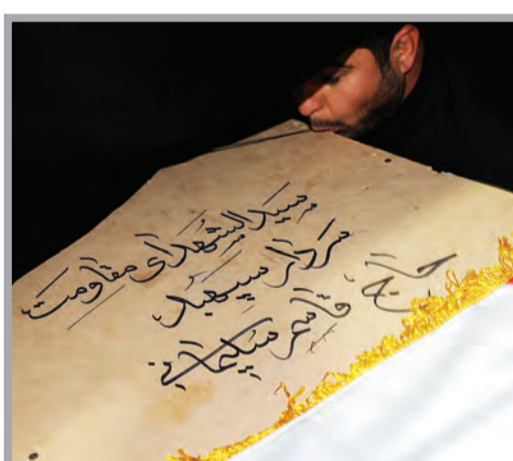 سیدالشهدای مقاومت
سردار سپهبد
حاج قاسم سلیمانی